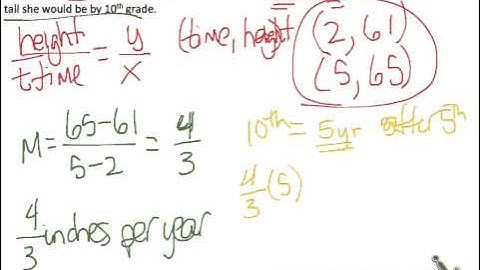 tall she would be by 10th grade.
height/time = y/x (time, height) (2, 61)
(5, 65)
M = 65-61/5-2 = 4/3
10th = 5yr after 5th
4/3 (5)
4/3 inches per year